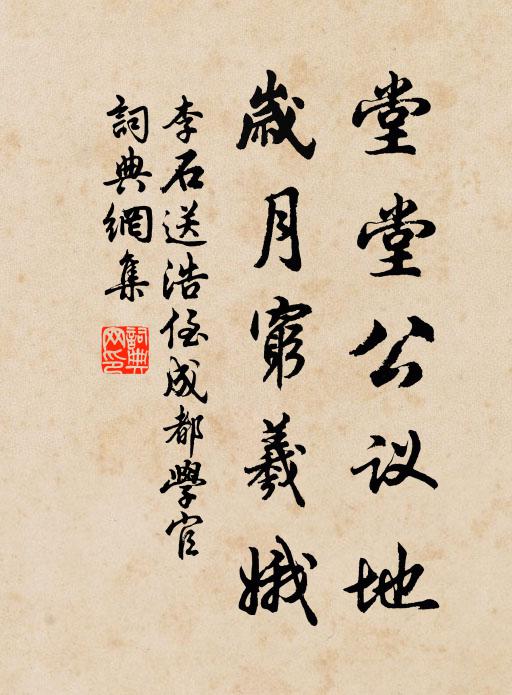 堂堂公议地
歲月窮羲娥
李石送浩侄成都學官
詞典網集
詞典網印